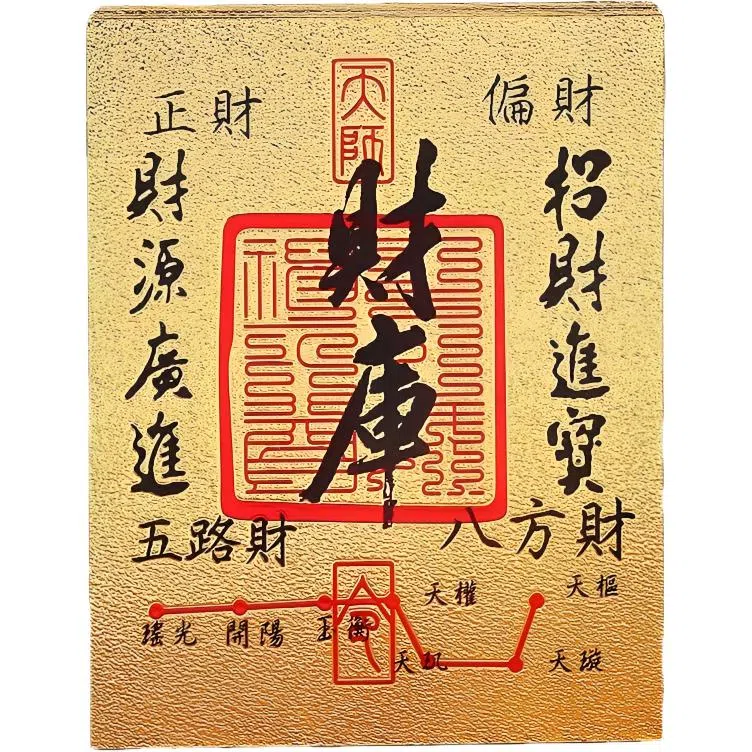 天師
正財
偏財
財庫
招財進寶
財源廣進
五路財
八方財
命
瑤光
開陽
玉衡
天權
天璣
天璇
天樞